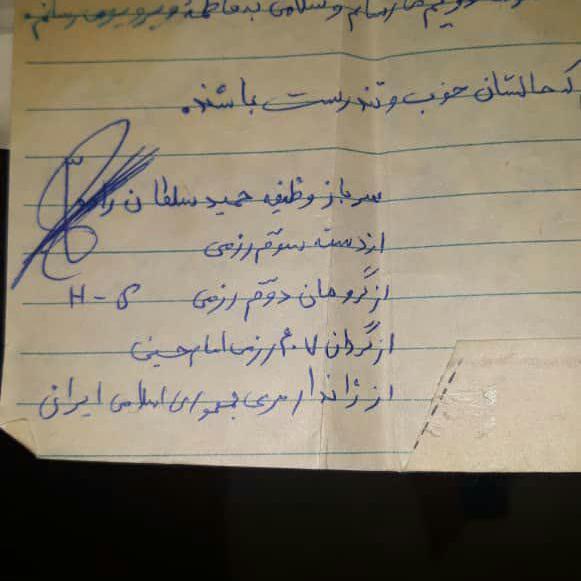 سلامی به فاطمه و
که حالشان خوب و تندرست باشند.
سرباز وظیفه حمید سلطان
از دسته سوّم رزمی
از گروهان دوّم رزمی H - S
از گردان ۴۰۷ رزمی امام حسینی
از ژاندارمری جمهوری اسلامی ایرانی